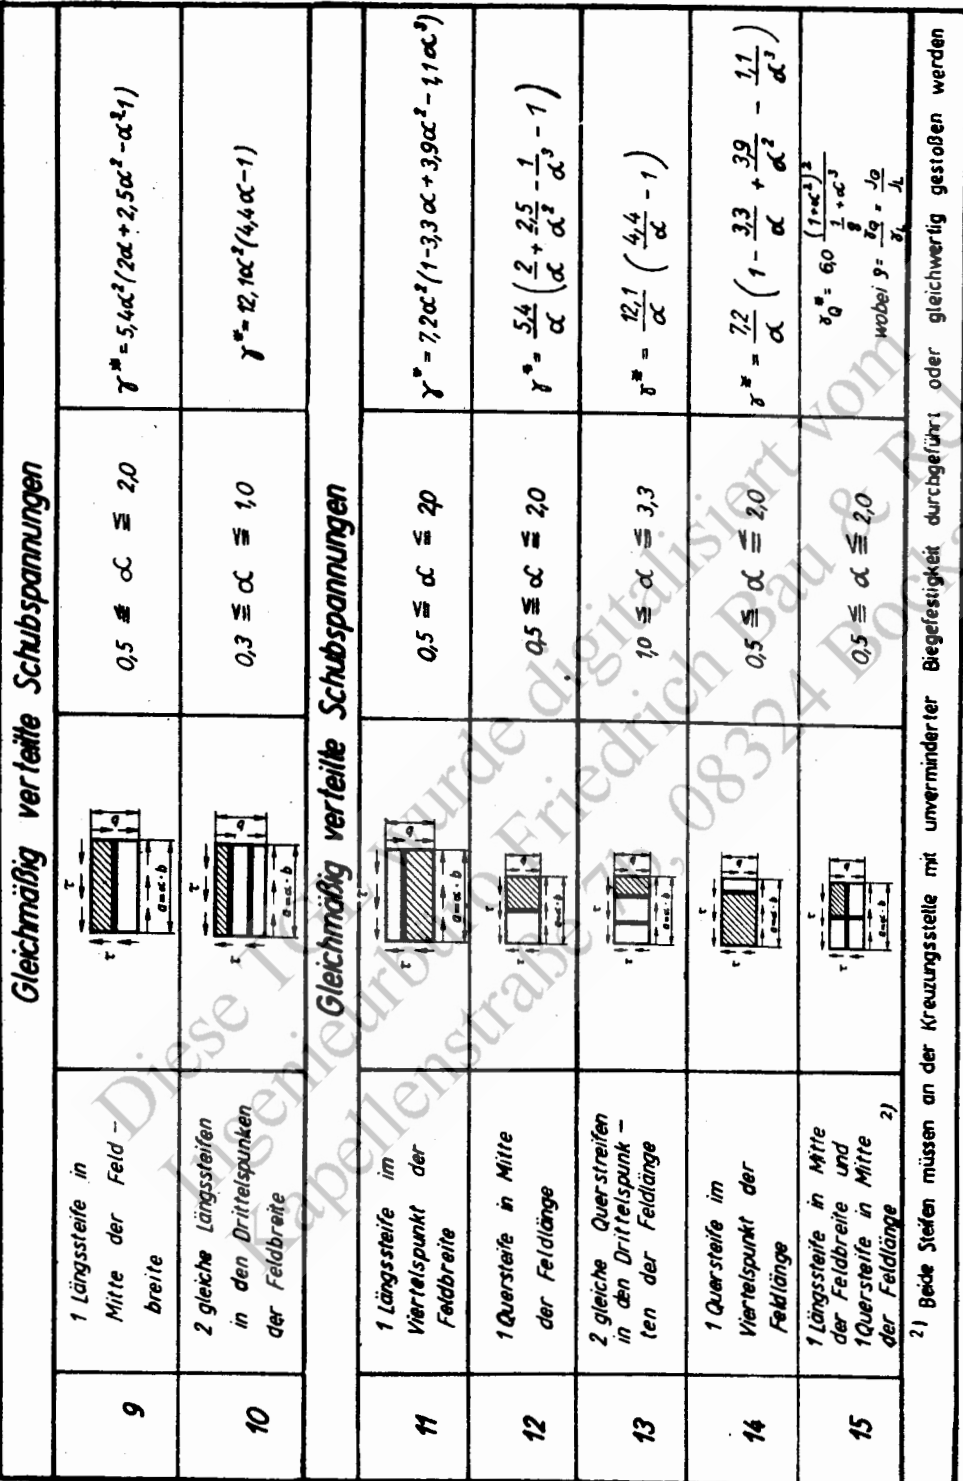 Gleichmäßig verteilte Schubspannungen
9
1 Längssteife in
Mitte der Feld -
breite
τ
τ
b
a=α·b
0,5 ≦ α ≦ 2,0
γ* = 5,4α²(2α+2,5α²-α³-1)
10
2 gleiche Längssteifen
in den Drittelspunken
der Feldbreite
τ
τ
b
a=α·b
0,3 ≦ α ≦ 1,0
γ* = 12,1α²(4,4α-1)
Gleichmäßig verteilte Schubspannungen
11
1 Längssteife im
Viertelspunkt der
Feldbreite
τ
τ
b
a=α·b
0,5 ≦ α ≦ 2,0
γ* = 7,2α²(1-3,3α+3,9α²-1,1α³)
12
1 Quersteife in Mitte
der Feldlänge
τ
τ
a=α·b
0,5 ≦ α ≦ 2,0
γ* = 5,4/α (2/α + 2,5/α² - 1/α³ - 1)
13
2 gleiche Querstreifen
in den Drittelspunk -
ten der Feldlänge
τ
τ
a=α·b
1,0 ≦ α ≦ 3,3
γ* = 12,1/α (4,4/α - 1)
14
1 Quersteife im
Viertelspunkt der
Feldlänge
τ
τ
a=α·b
0,5 ≦ α ≦ 2,0
γ* = 7,2/α (1 - 3,3/α + 3,9/α² - 1,1/α³)
15
1 Längssteife in Mitte
der Feldbreite und
1 Quersteife in Mitte
der Feldlänge 2)
τ
τ
a=α·b
0,5 ≦ α ≦ 2,0
γQ* = 6,0 (1+α²)² / (1/ϱ + α³)
wobei ϱ = γQ/γL = JQ/JL
2) Beide Steifen müssen an der Kreuzungsstelle mit unverminderter Biegefestigkeit durchgeführt oder gleichwertig gestoßen werden
Diese TGL wurde digitalisiert vom
Ingenieurbüro Friedrich Bau &
Kapellenstraße 7b, 08324